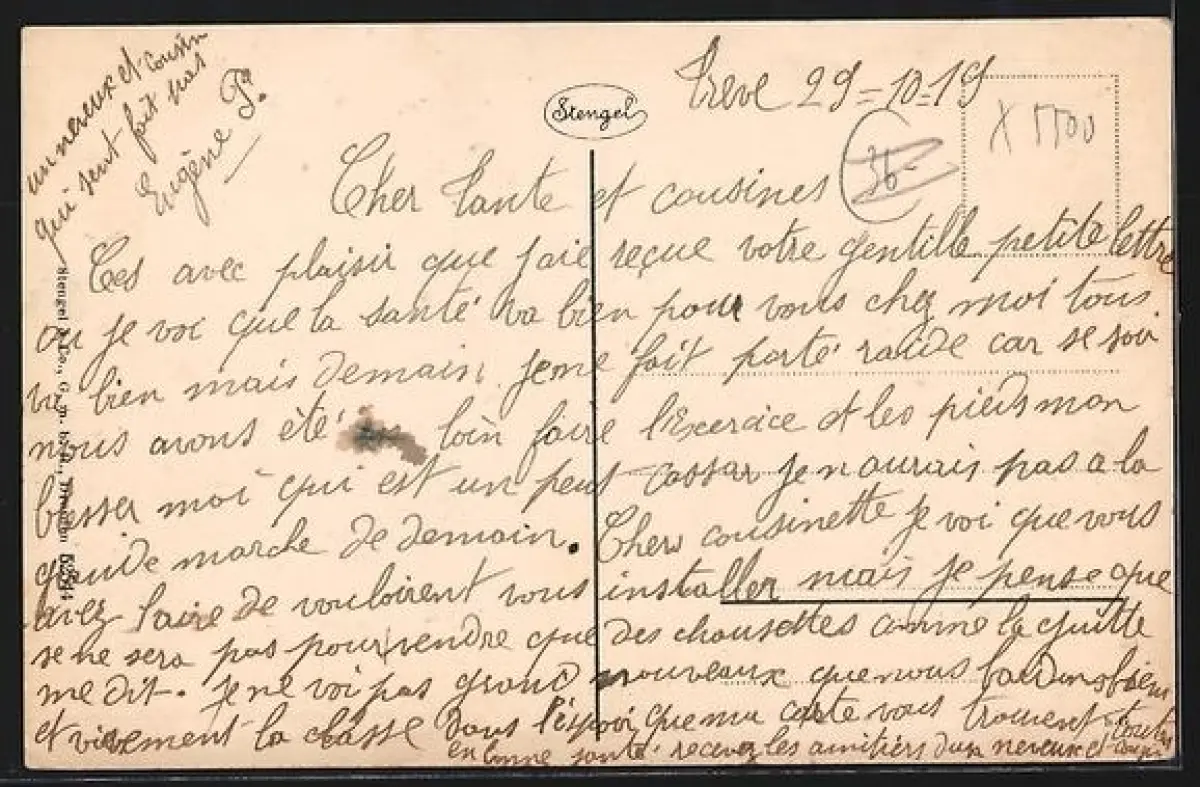 Stengel
Trêve 29=10-19
36-
X 1500
Cher tante et cousines
Ces avec plaisir que jaie reçue votre gentille petite lettre
ou je voi que la santé va bien pour vous chez moi tous
va bien mais demain je me fait porté raide car se soir
nous avons été loin faire l'Exercice et les pieds mon
blesser moi qui est un peut cassar je n aurais pas a la
grande marche de demain. Chers cousinette je voi que vous
avez l'aire de vouloirent vous installer mais je pense que
se ne sera pas pour vendre que des chausettes comme la
me dit. je ne voi pas grand nouveaux que nous
et vivement la classe dans l'éspoir que ma carte vous trouvent toutes
en bonne santé recevez les amitiers dun neveux et
un neveux et cousin
qui sent fait pas
Eugène P.
Stengel & Co., G. m. b. H.,